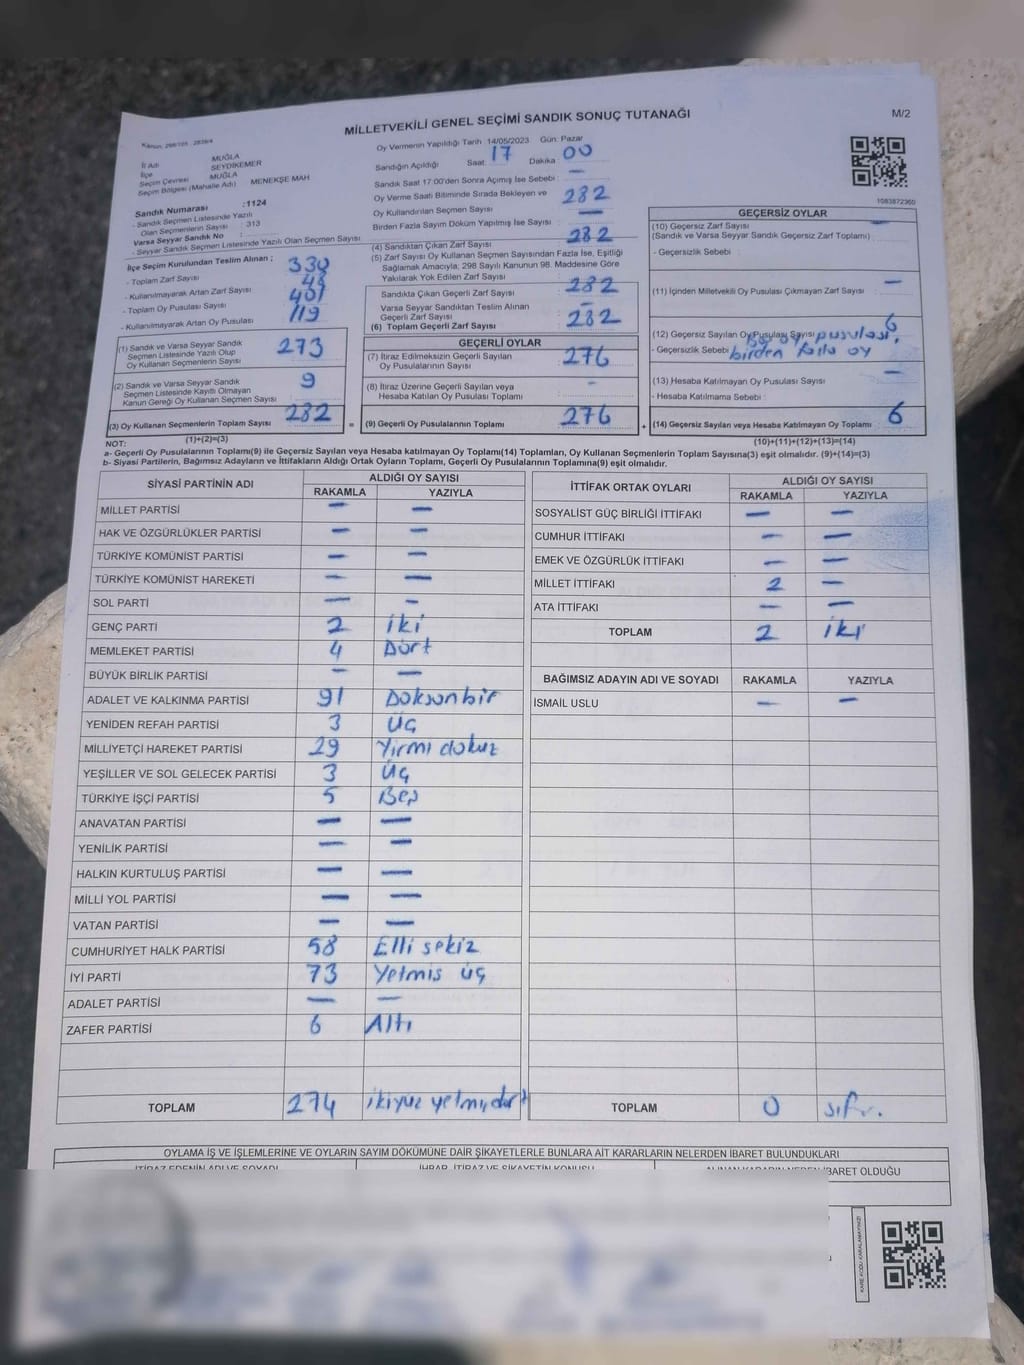 MİLLETVEKİLİ GENEL SEÇİMİ SANDIK SONUÇ TUTANAĞI
M/2
İl Adı MUĞLA
İlçe SEYDİKEMER
Seçim Çevresi MUĞLA
Seçim Bölgesi (Mahalle Adı) MENEKŞE MAH
Sandık Numarası :1124
- Sandık Seçmen Listesinde Yazılı
Olan Seçmenlerin Sayısı : 313
Varsa Seyyar Sandık No :
- Seyyar Sandık Seçmen Listesinde Yazılı Olan Seçmen Sayısı
İlçe Seçim Kurulundan Teslim Alınan ;
- Toplam Zarf Sayısı 330
- Kullanılmayarak Artan Zarf Sayısı 48
- Toplam Oy Pusulası Sayısı 401
- Kullanılmayarak Artan Oy Pusulası 119
(1) Sandık ve Varsa Seyyar Sandık
Seçmen Listesinde Yazılı Olup
Oy Kullanan Seçmenlerin Sayısı 273
(2) Sandık ve Varsa Seyyar Sandık
Seçmen Listesinde Kayıtlı Olmayan
Kanun Gereği Oy Kullanan Seçmen Sayısı 9
(3) Oy Kullanan Seçmenlerin Toplam Sayısı 282
Oy Vermenin Yapıldığı Tarih 14/05/2023 Gün: Pazar
Sandığın Açıldığı Saat: 17 Dakika : 00
Sandık Saat 17:00'den Sonra Açımış İse Sebebi : —
Oy Verme Saati Bitiminde Sırada Bekleyen ve
Oy Kullandırılan Seçmen Sayısı : 282
Birden Fazla Sayım Döküm Yapılmış İse Sayısı : —
(4) Sandıktan Çıkan Zarf Sayısı : 282
(5) Zarf Sayısı Oy Kullanan Seçmen Sayısından Fazla İse, Eşitliği
Sağlamak Amacıyla; 298 Sayılı Kanunun 98. Maddesine Göre
Yakılarak Yok Edilen Zarf Sayısı :
Sandıkta Çıkan Geçerli Zarf Sayısı : 282
Varsa Seyyar Sandıktan Teslim Alınan
Geçerli Zarf Sayısı : —
(6) Toplam Geçerli Zarf Sayısı : 282
GEÇERLİ OYLAR
(7) İtiraz Edilmeksizin Geçerli Sayılan
Oy Pusulalarının Sayısı : 276
(8) İtiraz Üzerine Geçerli Sayılan veya
Hesaba Katılan Oy Pusulası Toplamı : -
= (9) Geçerli Oy Pusulalarının Toplamı : 276
1083872360
GEÇERSİZ OYLAR
(10) Geçersiz Zarf Sayısı —
(Sandık ve Varsa Seyyar Sandık Geçersiz Zarf Toplamı)
- Geçersizlik Sebebi :
(11) İçinden Milletvekili Oy Pusulası Çıkmayan Zarf Sayısı : —
(12) Geçersiz Sayılan Oy Pusulası Sayısı : 6
- Geçersizlik Sebebi : oy pusulası, birden fazla oy
(13) Hesaba Katılmayan Oy Pusulası Sayısı : —
- Hesaba Katılmama Sebebi :
+ (14) Geçersiz Sayılan veya Hesaba Katılmayan Oy Toplamı : 6
NOT: (1)+(2)=(3) (10)+(11)+(12)+(13)=(14)
a- Geçerli Oy Pusulalarının Toplamı(9) ile Geçersiz Sayılan veya Hesaba katılmayan Oy Toplamı(14) Toplamları, Oy Kullanan Seçmenlerin Toplam Sayısına(3) eşit olmalıdır. (9)+(14)=(3)
b- Siyasi Partilerin, Bağımsız Adayların ve İttifakların Aldığı Ortak Oyların Toplamı, Geçerli Oy Pusulalarının Toplamına(9) eşit olmalıdır.
SİYASİ PARTİNİN ADI ALDIĞI OY SAYISI
RAKAMLA YAZIYLA
MİLLET PARTİSİ — —
HAK VE ÖZGÜRLÜKLER PARTİSİ — —
TÜRKİYE KOMÜNİST PARTİSİ — —
TÜRKİYE KOMÜNİST HAREKETİ — —
SOL PARTİ — —
GENÇ PARTİ 2 iki
MEMLEKET PARTİSİ 4 Dört
BÜYÜK BİRLİK PARTİSİ — —
ADALET VE KALKINMA PARTİSİ 91 Doksan bir
YENİDEN REFAH PARTİSİ 3 Üç
MİLLİYETÇİ HAREKET PARTİSİ 29 Yirmi dokuz
YEŞİLLER VE SOL GELECEK PARTİSİ 3 Üç
TÜRKİYE İŞÇİ PARTİSİ 5 Beş
ANAVATAN PARTİSİ — —
YENİLİK PARTİSİ — —
HALKIN KURTULUŞ PARTİSİ — —
MİLLİ YOL PARTİSİ — —
VATAN PARTİSİ — —
CUMHURİYET HALK PARTİSİ 58 Elli sekiz
İYİ PARTİ 73 Yetmis üç
ADALET PARTİSİ — —
ZAFER PARTİSİ 6 Altı
TOPLAM 274 ikiyüz yetmiş dört
İTTİFAK ORTAK OYLARI ALDIĞI OY SAYISI
RAKAMLA YAZIYLA
SOSYALİST GÜÇ BİRLİĞİ İTTİFAKI — —
CUMHUR İTTİFAKI — —
EMEK VE ÖZGÜRLÜK İTTİFAKI — —
MİLLET İTTİFAKI 2 —
ATA İTTİFAKI — —
TOPLAM 2 iki
BAĞIMSIZ ADAYIN ADI VE SOYADI RAKAMLA YAZIYLA
İSMAİL USLU — —
TOPLAM 0 sıfır.
OYLAMA İŞ VE İŞLEMLERİNE VE OYLARIN SAYIM DÖKÜMÜNE DAİR ŞİKAYETLERLE BUNLARA AİT KARARLARIN NELERDEN İBARET BULUNDUKLARI
İTİRAZ EDENİN ADI VE SOYADI İHBAR, İTİRAZ VE ŞİKAYETİN KONUSU ALINAN KARARIN NEDEN İBARET OLDUĞU
KARE KODU KARALAMAYINIZ!